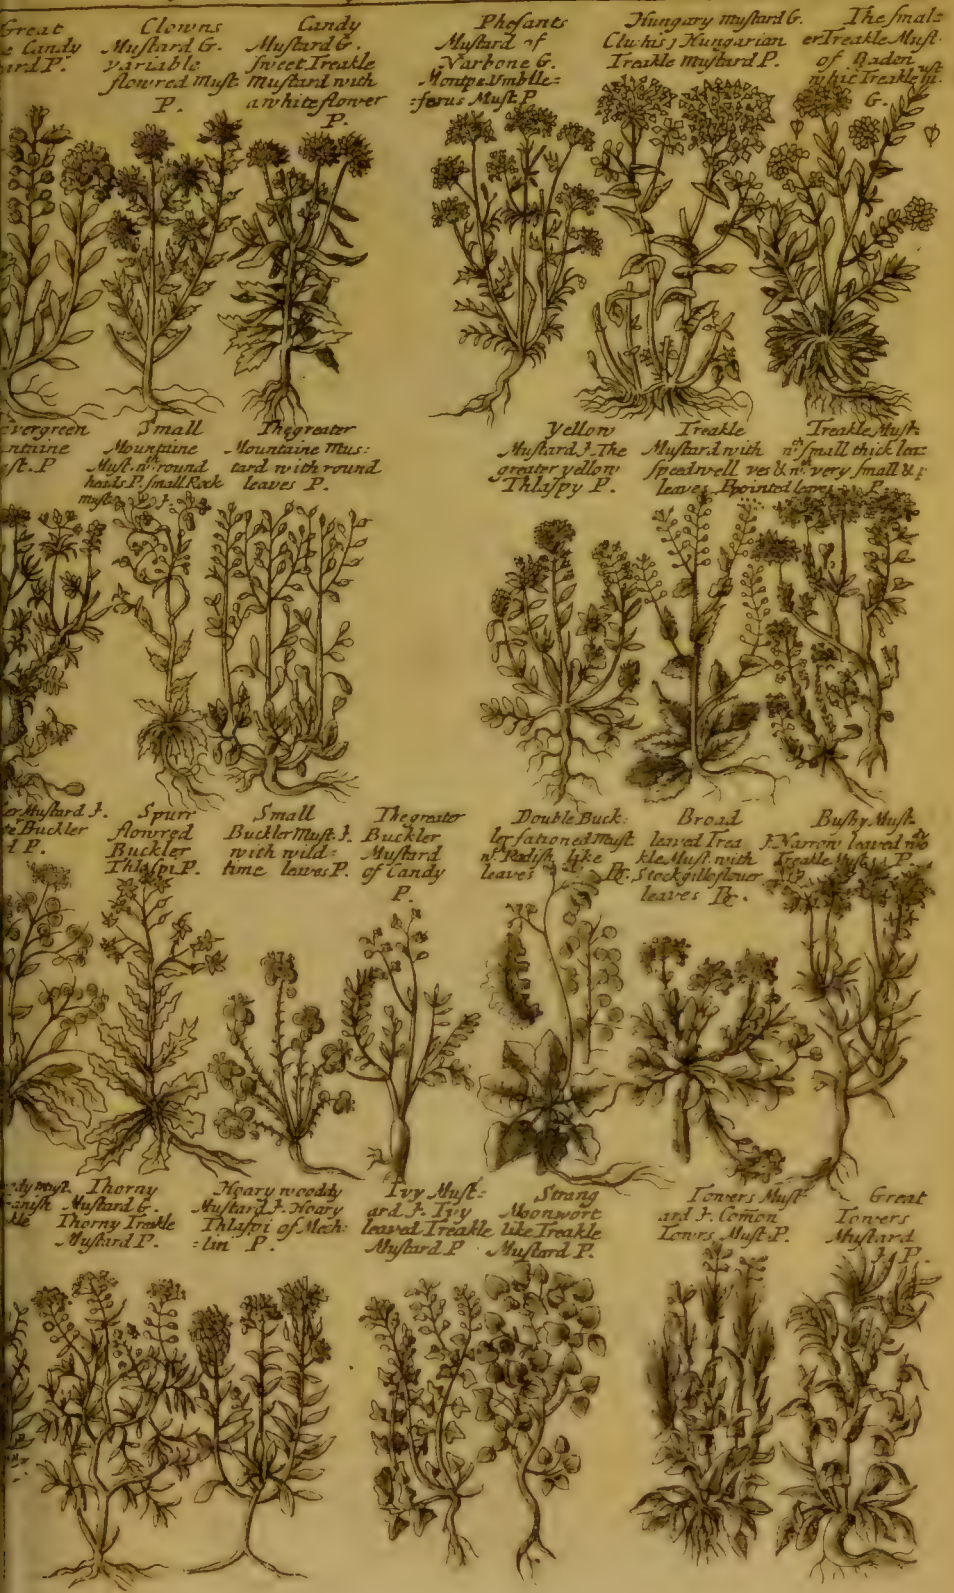 Great
Candy
P.
Clowns
Mustard G.
variable
flowred Must.
P.
Candy
Mustard G.
Sweet Treakle
Mustard with
a white flower
P.
Phesants
Mustard of
Narbone G.
Montpe. Umblle=
=ferus Must. P
Hungary mustard G.
Clusius; Hungarian
Treakle Mustard P.
The smal=
er Treakle Must.
of Baden
whit Treakle
G.
Evergreen
P
Small
Mountaine
Must. wth round
heads P. small Rock
must. J.
The greater
Mountaine Mus=
tard with round
leaves P.
Yellow
Mustard J. The
greater yellow
Thlaspy P.
Treakle
Mustard with
speedwell
leaves P
Treakle Must=
wth small thick lea=
ves & wth very small &
pointed leaves P.
Mustard J.
Buckler
P.
Spurr
flowred
Buckler
Thlaspi P.
Small
Buckler Must. J.
with wild=
time leaves P.
The greater
Buckler
Mustard
of Candy
P.
Double Buck=
ler fationed Must
wth Radish like
leaves
Broad
leaved Trea
kle Must. with
Stockgilloflower
leaves
Bushy Must=
J. Narrow leaved
Treakle Must. P.
Thorny
Mustard G.
Thorny Treakle
Mustard P.
Hoary wooddy
Mustard J. Hoary
Thlaspi of Mech=
=lin P.
Ivy Must=
ard J. Ivy
leaved Treakle
Mustard P
Strang
Moonwort
like Treakle
Mustard P.
Towers Must
ard J. Com̃on
Towrs Must P.
Great
Towers
Mustard
J. P.